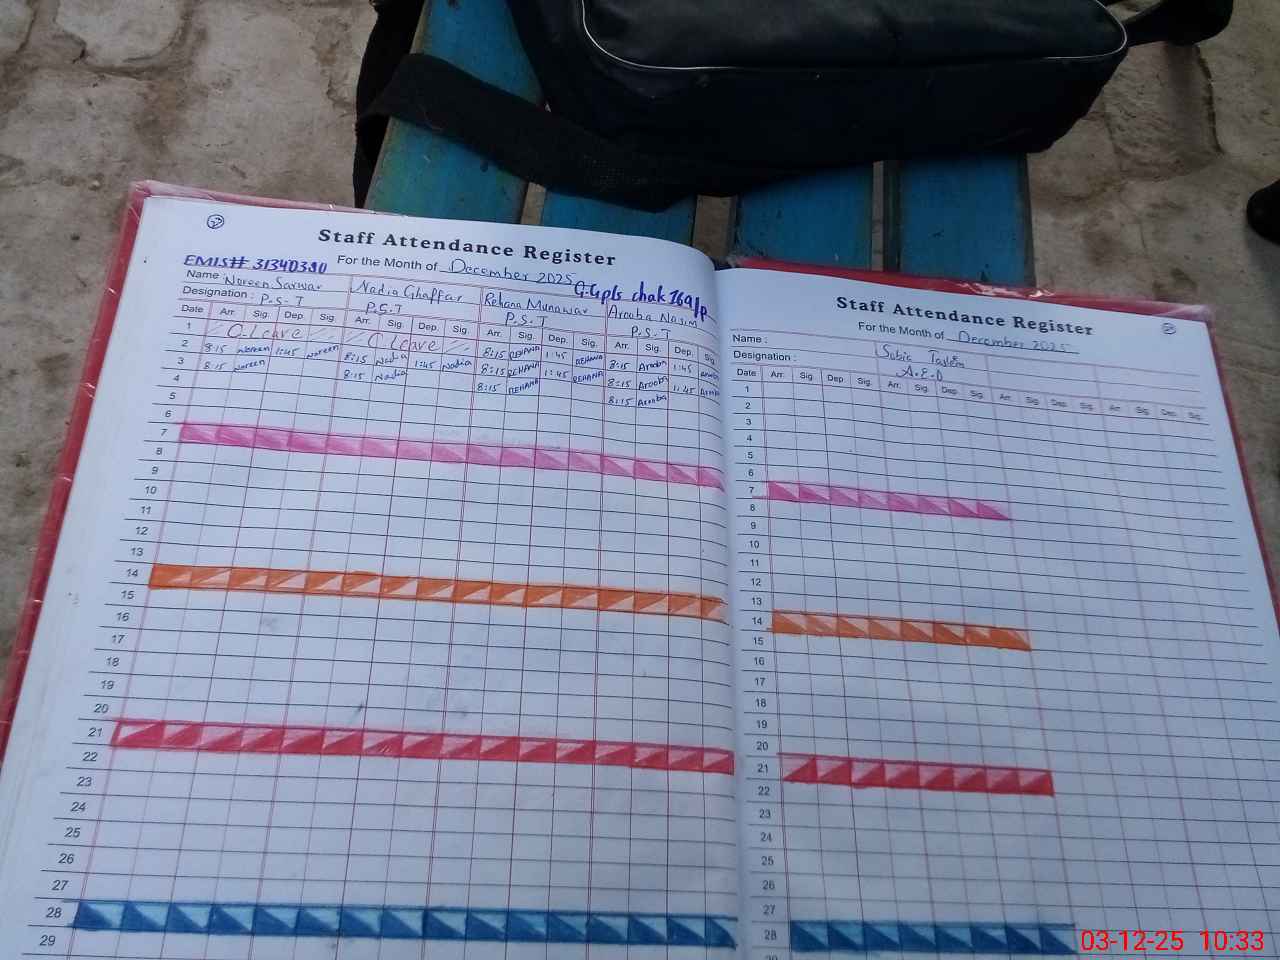 Staff Attendance Register
For the Month of December 2025
EMIS# 31340390 G.Gpls chak 169/P
Name : Noreen Sarwar Nadia Ghaffar Rehana Munawar Arooba Nasim
Designation : P.S.T P.S.T P.S.T P.S.T
Date Arr. Sig. Dep. Sig. Arr. Sig. Dep. Sig. Arr. Sig. Dep. Sig. Arr. Sig. Dep. Sig
1 C.Leave C leave 8:15 REHANA 1:45 REHANA 8:15 Arooba 1:45 Arooba
2 8:15 Noreen 1:45 Noreen 8:15 Nadia 1:45 Nadia 8:15 REHANA 1:45 REHANA 8:15 Arooba 1:45 Arooba
3 8:15 Noreen 8:15 Nadia 8:15 REHANA 8:15 Arooba
4
5
6
7
8
9
10
11
12
13
14
15
16
17
18
19
20
21
22
23
24
25
26
27
28
29
Staff Attendance Register
For the Month of December 2025
Name :
Designation : A.E.O
Date Arr. Sig. Dep. Sig. Arr. Sig. Dep. Sig. Arr. Sig. Dep. Sig. Arr. Sig. Dep. Sig.
1
2
3
4
5
6
7
8
9
10
11
12
13
14
15
16
17
18
19
20
21
22
23
24
25
26
27
28
03-12-25 10:33